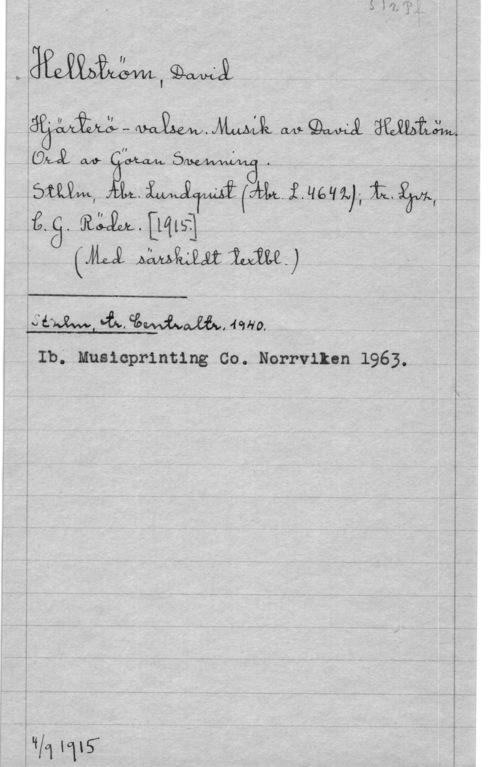 Hellström, David
Hjärterö-valsen. Musik av David Hellström.
Ord av Göran Svenning.
Sthlm, Abr. Lundquist (Abr. L. 4642); tr. Lpz,
C. G. Röder. [1915]
(Med särskildt textbl.)
Sthlm, tr. Centraltr. 1940.
Ib. Musicprinting Co. Norrviken 1963.
4/9 1915